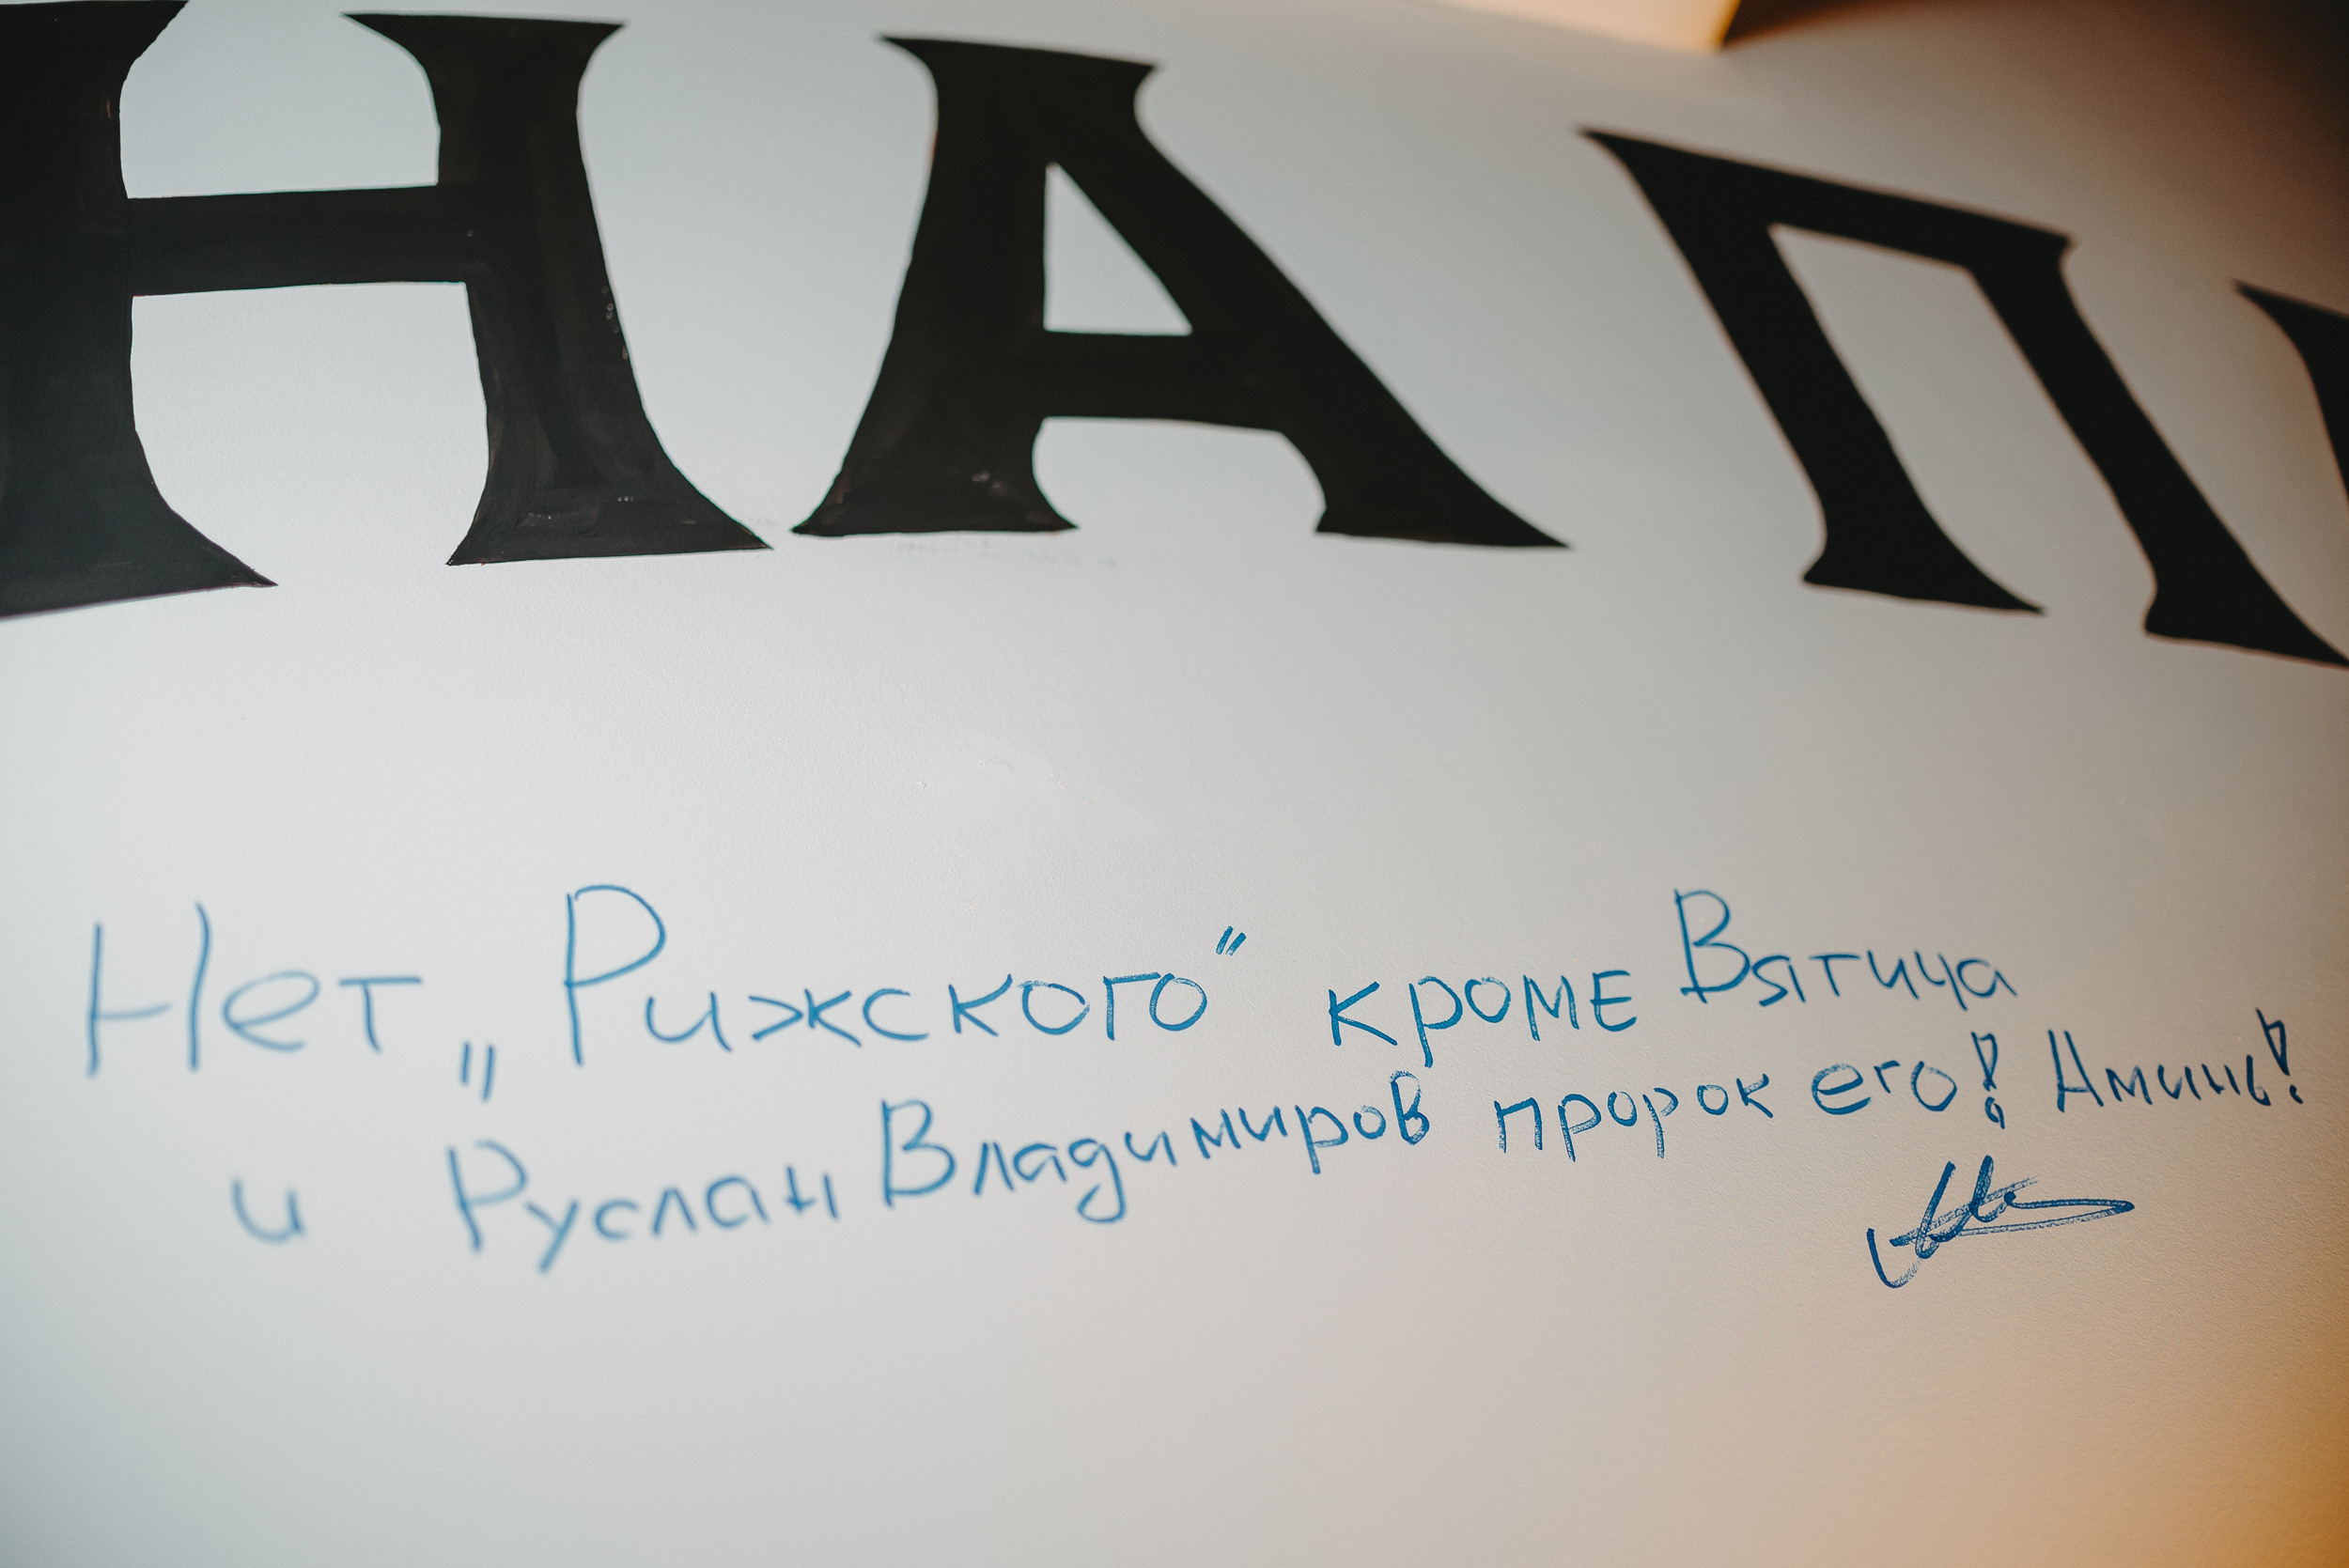 НА П
Нет „Рижского" кроме Вятича
и Руслан Владимиров пророк его! Аминь!